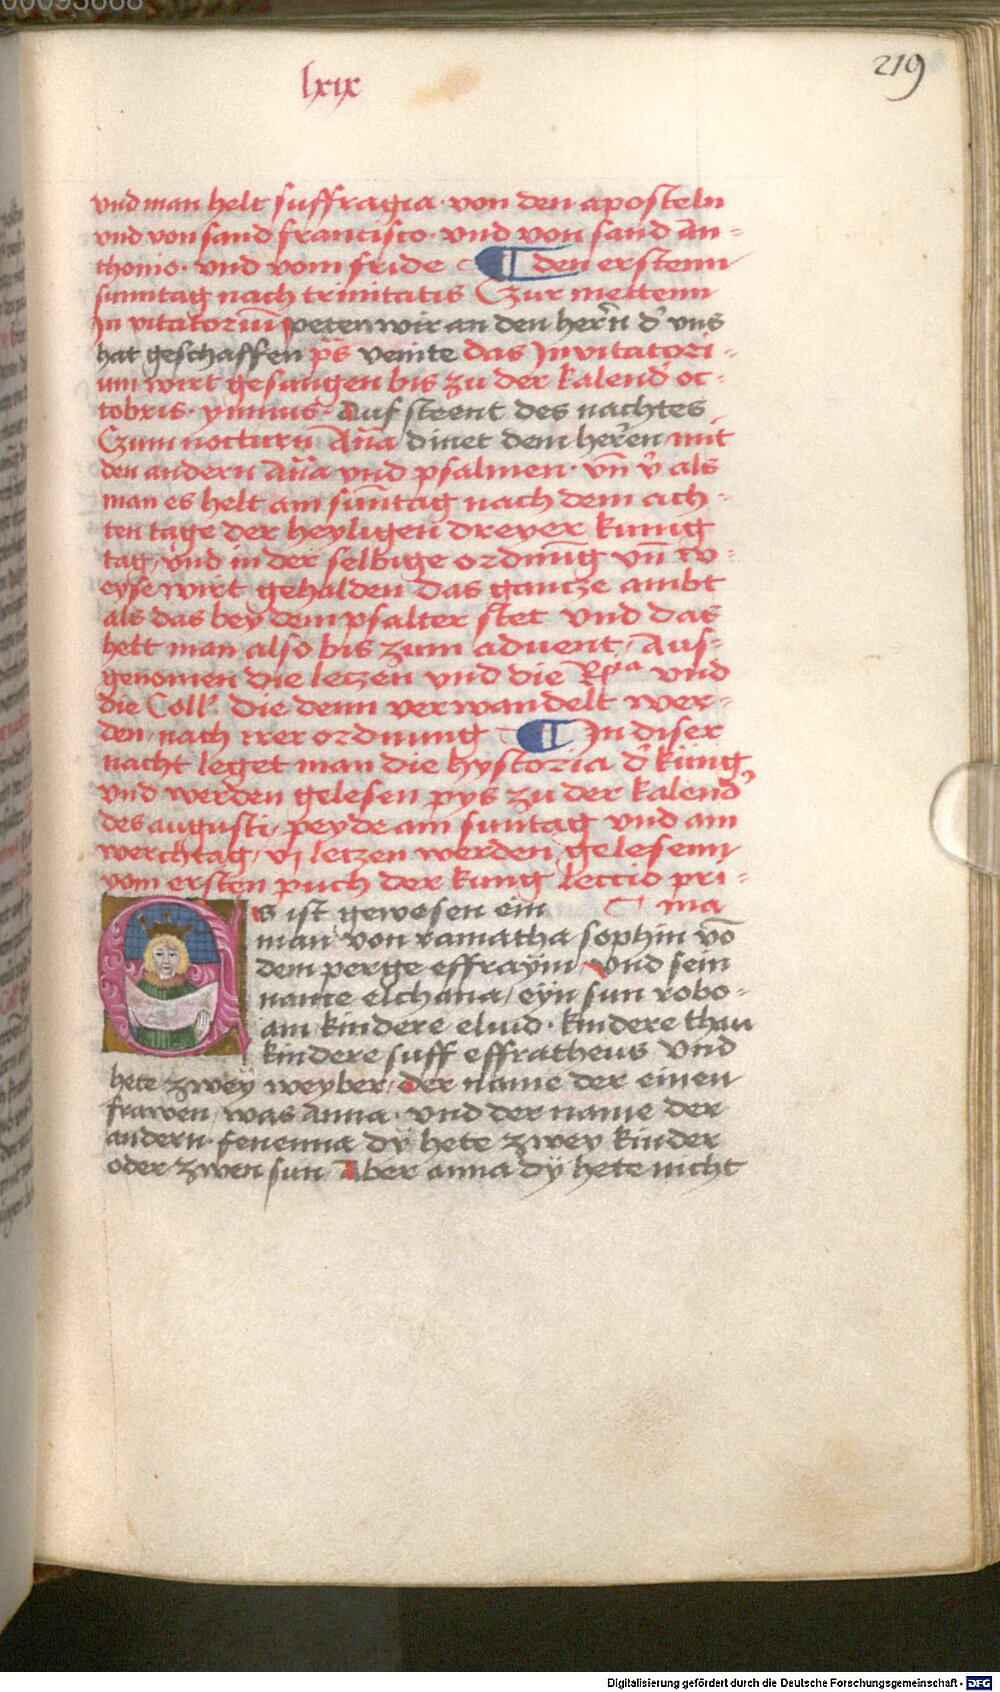 00093668
lxix
219
vnd man helt suffragia · von den aposteln
vnd von sand francisco · vnd von sand An=
thonio · vnd vom fride ¶ den erstenn
sunntag nach trinitatis Czur mettenn
Jn vitatoriū peten wir an den herñ d' vns
hat geschaffen ps̄ venite das Jnvitatori=
um wirt gesungen bis zu der kalend' oc=
tobris · ymnus · Auf steent des nachtes
Czum nocturn Ana̅ dinet dem heren mit
den andern Ana̅ vnd psalmen · vn̄ v̉ als
man es helt am sūntag nach dem ach=
ten tage der heyligen dreyer kunig
tag / vnd in der selbige ordnūg vn̄ w=
eyse wirt gehalden das gantze ambt
als das bey dem psalter stet vnd das
helt man also bis zum aduent / Aus=
genomen die letzen vnd die Rpͣ vnd
die Coll' die denn verwandelt wer=
den · nach irer ordnung ¶ Jn diser
nacht leget man die hystoria d' kūng
vnd werden gelesen pys zu der kalend'
des augusti / peyde am suntag vnd am
werchtag / vj letzen werden gelesenn
vom ersten puch der kung leccio pri=
Es ist gewesen ein ma
man von ramatha sophin vō
dem perge effraÿm Vnd sein
name elchana / eÿn sun robo=
am kindere eluid · kindere thau
kindere suff effratheus vnd
hete zwey weyber / der name der einen
frawen / was Anna · vnd der name der
andern · fenenna dÿ hete zwey kinder
oder zwen sun Aber anna dÿ hete nicht
Digitalisierung gefördert durch die Deutsche Forschungsgemeinschaft - DFG